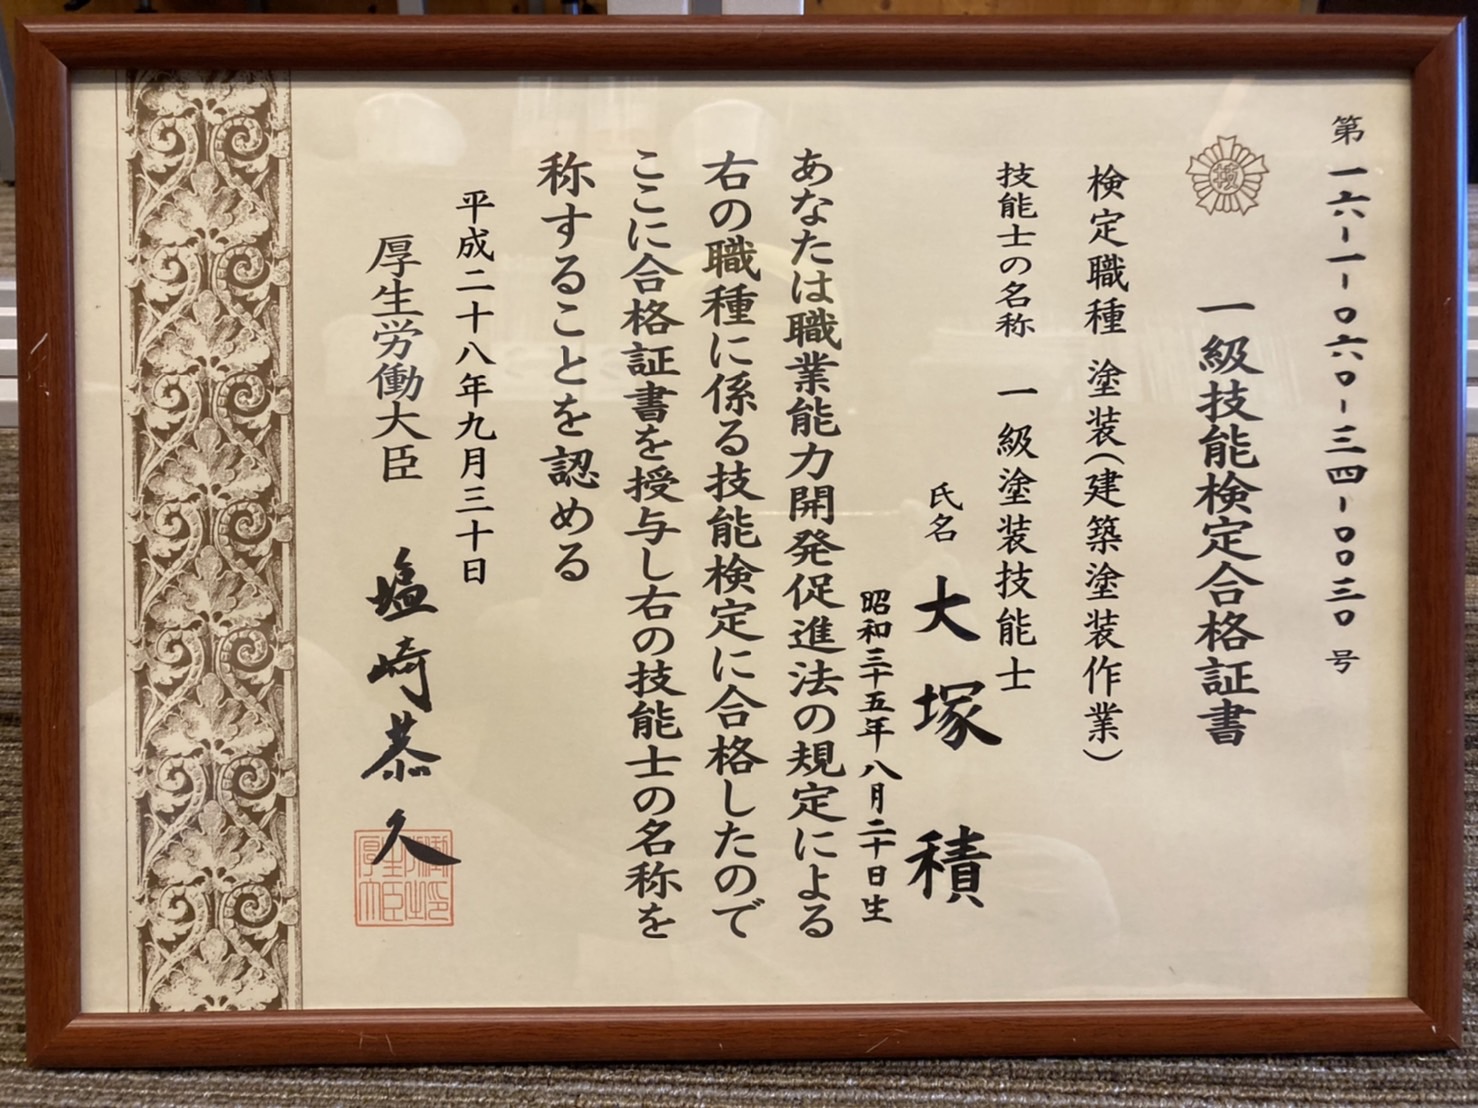 第一六-一-〇六〇-三四-〇〇三〇号
検
一級技能検定合格証書
検定職種 塗装(建築塗装作業)
技能士の名称 一級塗装技能士
氏名 大塚 積
昭和三十五年八月二十日生
あなたは職業能力開発促進法の規定による
右の職種に係る技能検定に合格したので
ここに合格証書を授与し右の技能士の名称を
称することを認める
平成二十八年九月三十日
厚生労働大臣 塩崎恭久